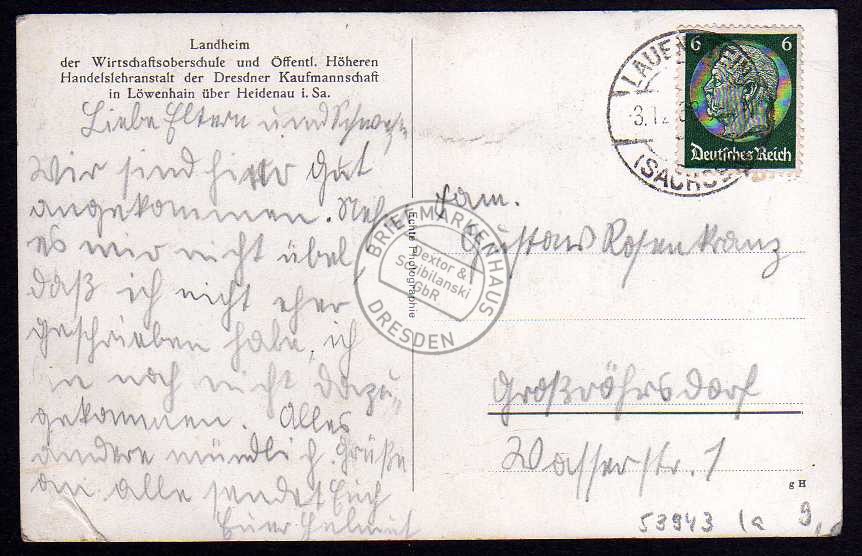 Landheim
der Wirtschaftsoberschule und Öffentl. Höheren
Handelslehranstalt der Dresdner Kaufmannschaft
in Löwenhain über Heidenau i. Sa.
Liebe Eltern und Schwest
Wir sind hier gut
angekommen. Neh
es mir nicht übel,
daß ich nicht eher
geschrieben habe, ich
noch nicht dazu=
gekommen. Alles
andere mündlich. Grüße
an alle sendet Euch
Euer Helmut
Echte Photographie
BRIEFMARKENHAUS
Dextor &
Scibilanski
GbR
DRESDEN
6 6
Deutsches Reich
LAUEN
3.12.
(SACHS
Fam.
Gustav Rosenkranz
Großröhrsdorf
Wasserstr. 1
g H
53943 1a 9,